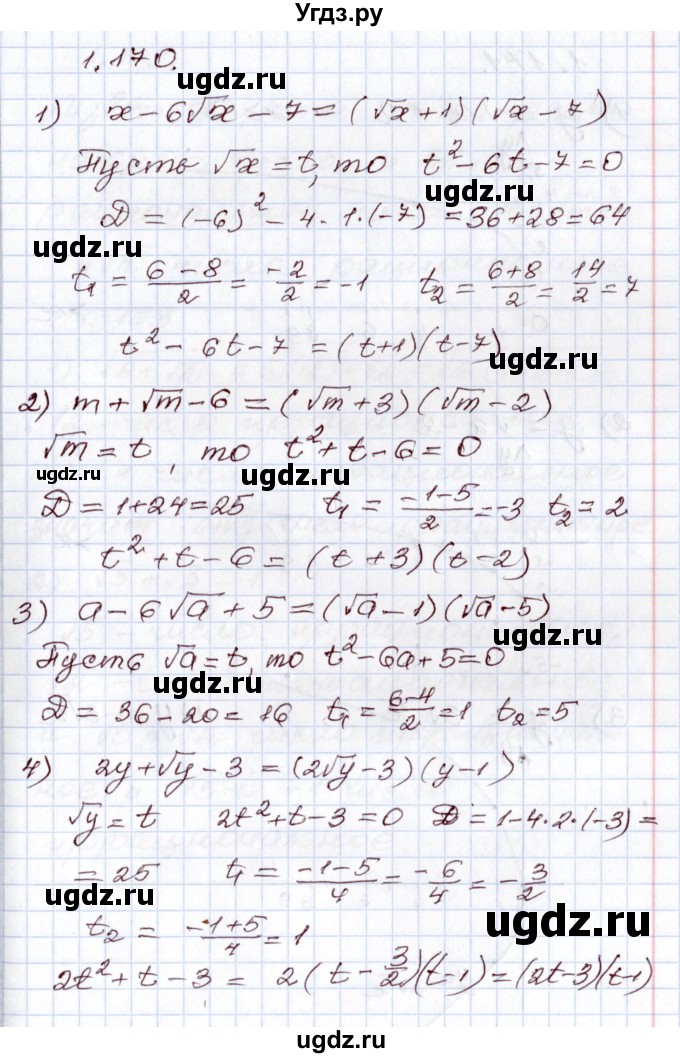 Угдз.ру
1.170.
ugdz.ru
1) x - 6√x - 7 = (√x + 1)(√x - 7)
ugdz.ru
Пусть √x = t, то t² - 6t - 7 = 0
Д = (-6)² - 4 · 1 · (-7) = 36 + 28 = 64
ugdz.ru
t₁ = (6 - 8)/2 = -2/2 = -1 t₂ = (6+8)/2 = 14/2 = 7
t² - 6t - 7 = (t+1)(t-7)
ugdz.ru
2) m + √m - 6 = (√m + 3)(√m - 2)
√m = t, то t² + t - 6 = 0
ugdz.ru ugdz.ru
Д = 1+24 = 25 t₁ = (-1-5)/2 = -3 t₂ = 2
t² + t - 6 = (t + 3)(t - 2)
3) a - 6√a + 5 = (√a - 1)(√a - 5)
ugdz.ru
Пусть √a = t, то t² - 6a + 5 = 0
Д = 36 - 20 = 16 t₁ = (6-4)/2 = 1 t₂ = 5
ugdz.ru
4) 2y + √y - 3 = (2√y - 3)(y - 1)
ugdz.ru
√y = t 2t² + t - 3 = 0 Д = 1 - 4 · 2 · (-3) =
= 25 t₁ = (-1-5)/4 = -6/4 = -3/2
ugdz.ru
t₂ = (-1+5)/4 = 1
2t² + t - 3 = 2(t - 3/2)(t-1) = (2t-3)(t-1)
ugdz.ru